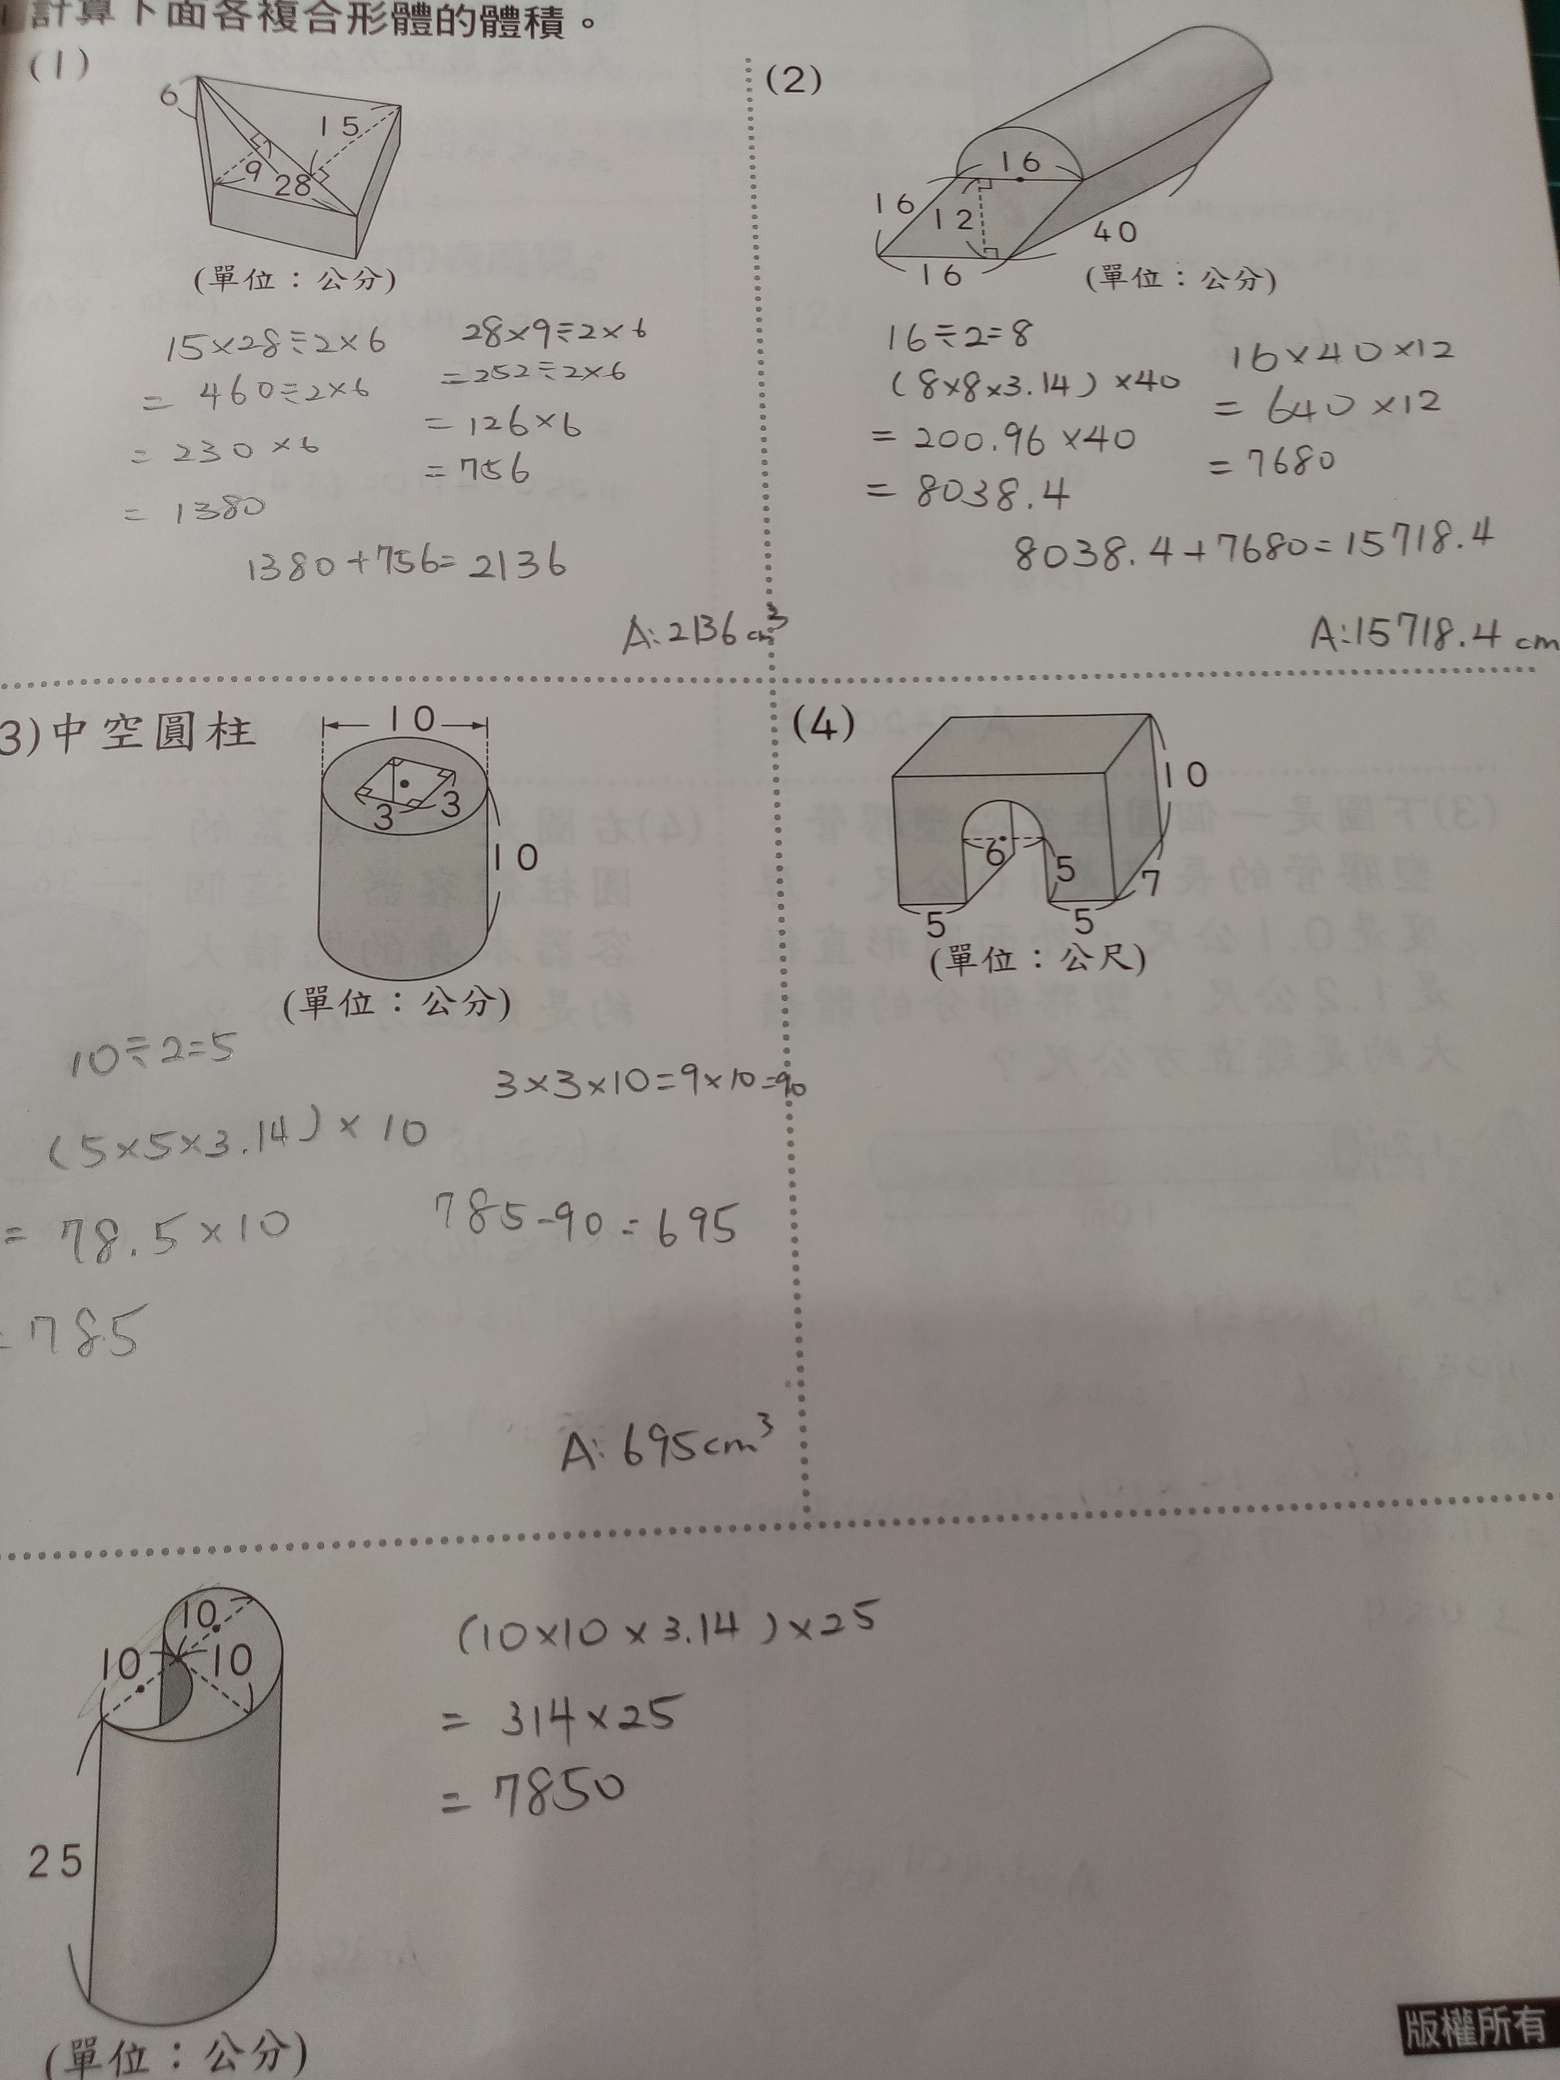 計算下面各複合形體的體積。
(1)
6
15
9
28
(單位：公分)
15×28÷2×6
= 460÷2×6
= 230×6
= 1380
28×9÷2×6
=252÷2×6
=126×6
=756
1380+756=2136
A:2136cm³
(2)
16
16
12
16
40
(單位：公分)
16÷2=8
(8×8×3.14)×40
=200.96×40
=8038.4
16×40×12
=640×12
=7680
8038.4+7680=15718.4
A:15718.4 cm
3)中空圓柱
10
3
3
10
(單位：公分)
10÷2=5
(5×5×3.14)×10
=78.5×10
=785
3×3×10=9×10=90
785-90=695
A:695cm³
(4)
10
6
5
7
5
5
(單位：公尺)
10
10
10
25
(單位：公分)
(10×10×3.14)×25
=314×25
=7850
版權所有